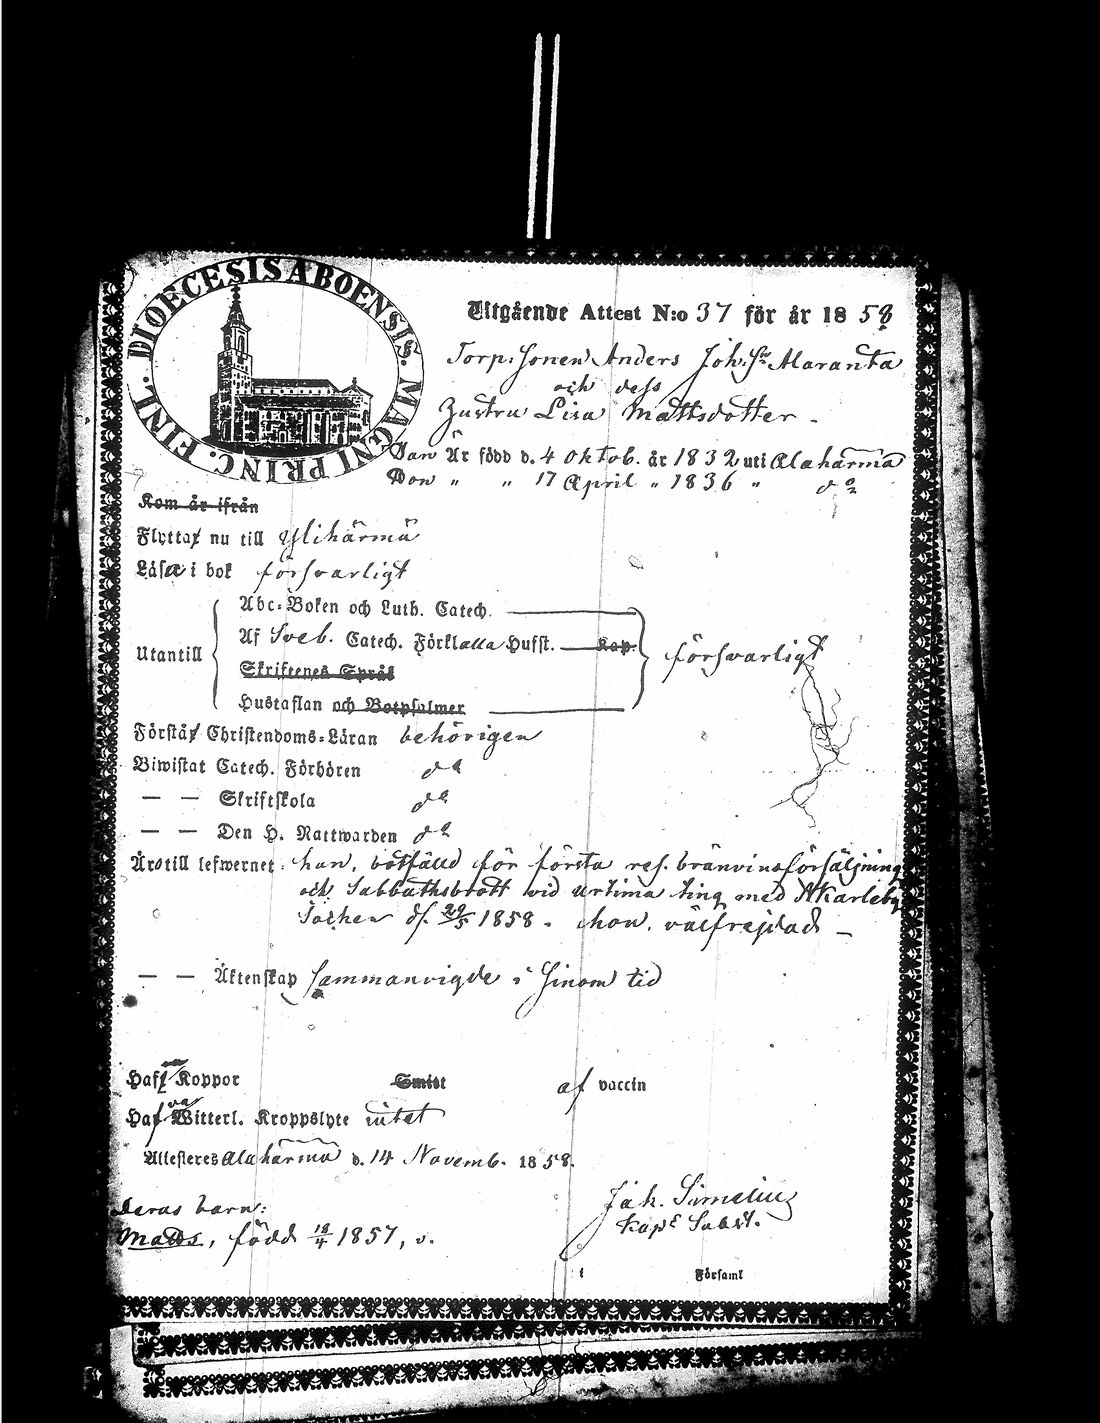 DIOECESIS ABOENSIS. MAGNI PRINC. FINL.
Utgående Attest N:o 37 för år 1858
Torp: Sonen Anders Joh:Sn Alaranta
och dess
Hustru Lisa Mattsdotter -
Han Är född d. 4 Oktob. år 1832 uti Alahärmä
Hon " " 17 April " 1836 " do
Kom är ifrån
Flyttar nu till Ylihärmä
Läsa i bok försvarligt
Utantill
Abc-Boken och Luth. Catech.
Af Sveb. Catech. Förkl. alla Hufst. Kap.
försvarligt
Skriftenes Språk
Hustaflan och Botpsalmer
Förstår Christendoms-Läran behörigen
Biwistat Catech. Förhören do
— — Skriftskola do
— — Den H. Nattwarden do
Äro till lefwernet: han, botfälld för första res. bränvinsförsäljning
och Sabbathsbrott vid urtima ting med NKarleby
Socken d. 29/5 1858. hon, välfrejdad -
— — Äktenskap Sammanvigde i sinom tid
Haft Koppor Smitt af vaccin
Haf Witterl. Kroppslyte intet
Attesteres Alahärmä d. 14 Novemb. 1858.
Deras barn:
Matts, född 18/4 1857, v.
Joh. Simelius
Kapl Subst.
i Församl